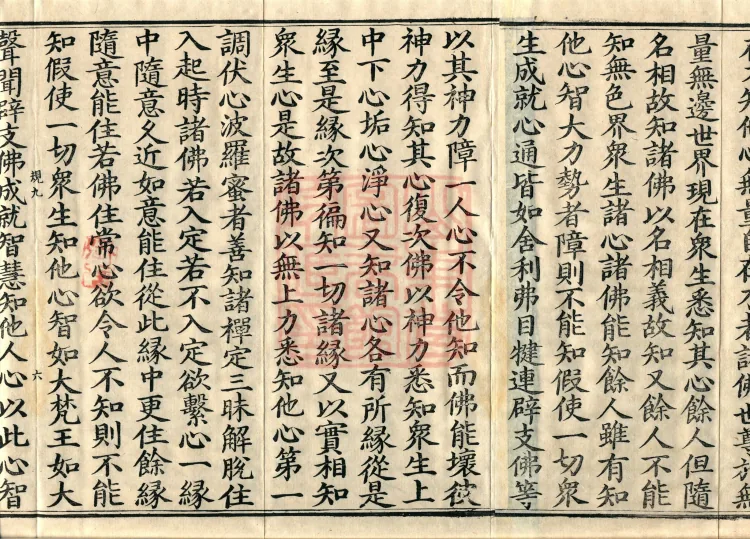 量無邊世界現在衆生悉知其心餘人但隨
名相故知諸佛以名相義故知又餘人不能
知無色界衆生諸心諸佛能知餘人雖有知
他心智大力勢者障則不能知假使一切衆
生成就心通皆如舍利弗目犍連辟支佛等
以其神力障一人心不令他知而佛能壞彼
神力得知其心復次佛以神力悉知衆生上
中下心垢心淨心又知諸心各有所緣從是
緣至是緣次第徧知一切諸緣又以實相知
衆生心是故諸佛以無上力悉知他心第一
調伏心波羅蜜者善知諸禪定三昧解脫住
入起時諸佛若入定若不入定欲繫心一緣
中隨意久近如意能住從此緣中更住餘緣
隨意能住若佛住常心欲令人不知則不能
知假使一切衆生知他心智如大梵王如大
規九 六
聲聞辟支佛成就智慧知他人心以此心智